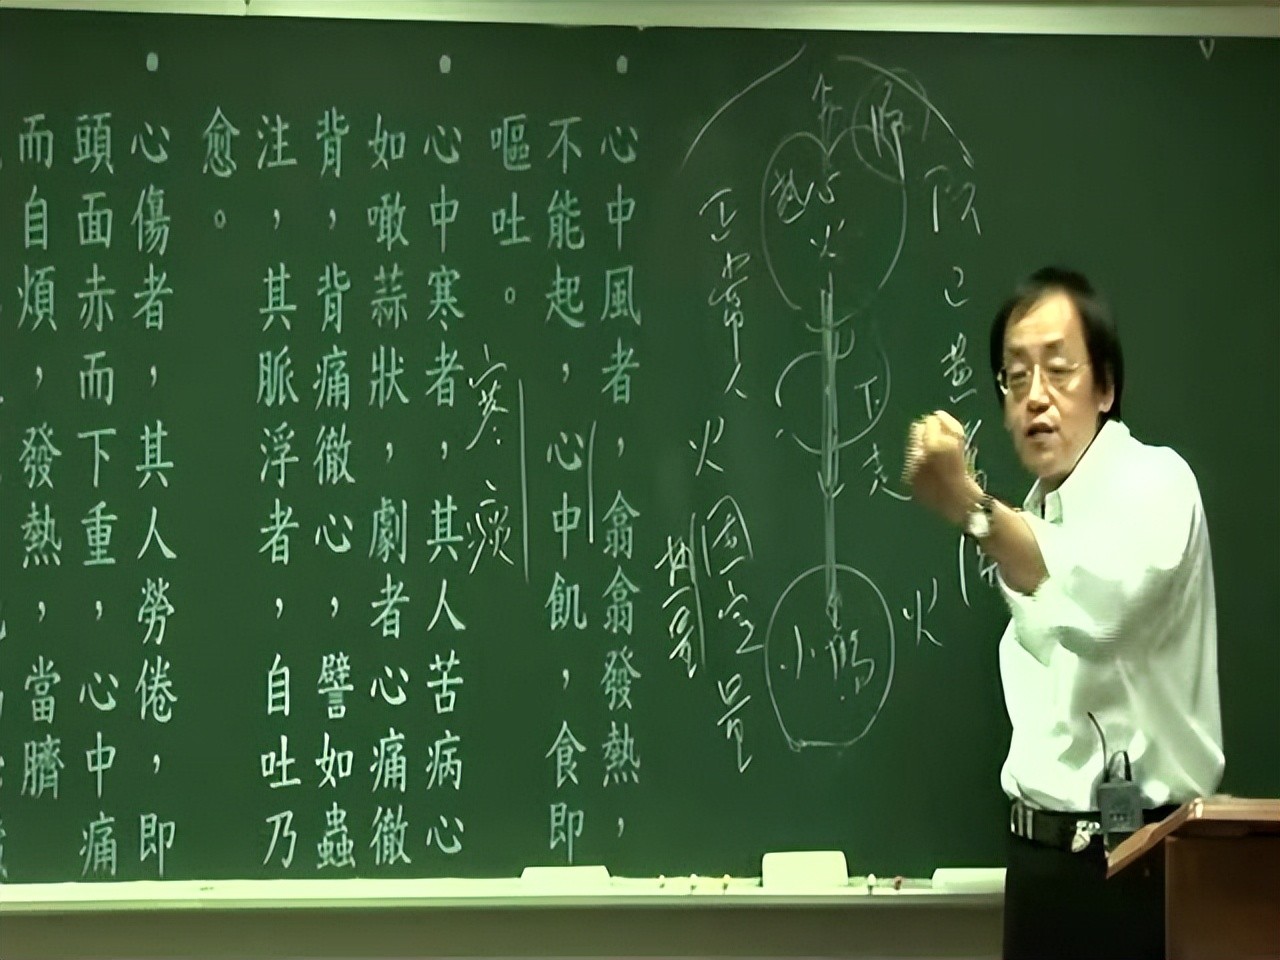 心中風者，翕翕發熱，
不能起，心中飢，食即
嘔吐。
心中寒者，其人苦病心
如噉蒜狀，劇者心痛徹
背，背痛徹心，譬如蟲
注，其脈浮者，自吐乃
愈。
心傷者，其人勞倦，即
頭面赤而下重，心中痛
而自煩，發熱，當臍
寒痰
正常人
火
固定量
熱心
火
下走
小腸
火